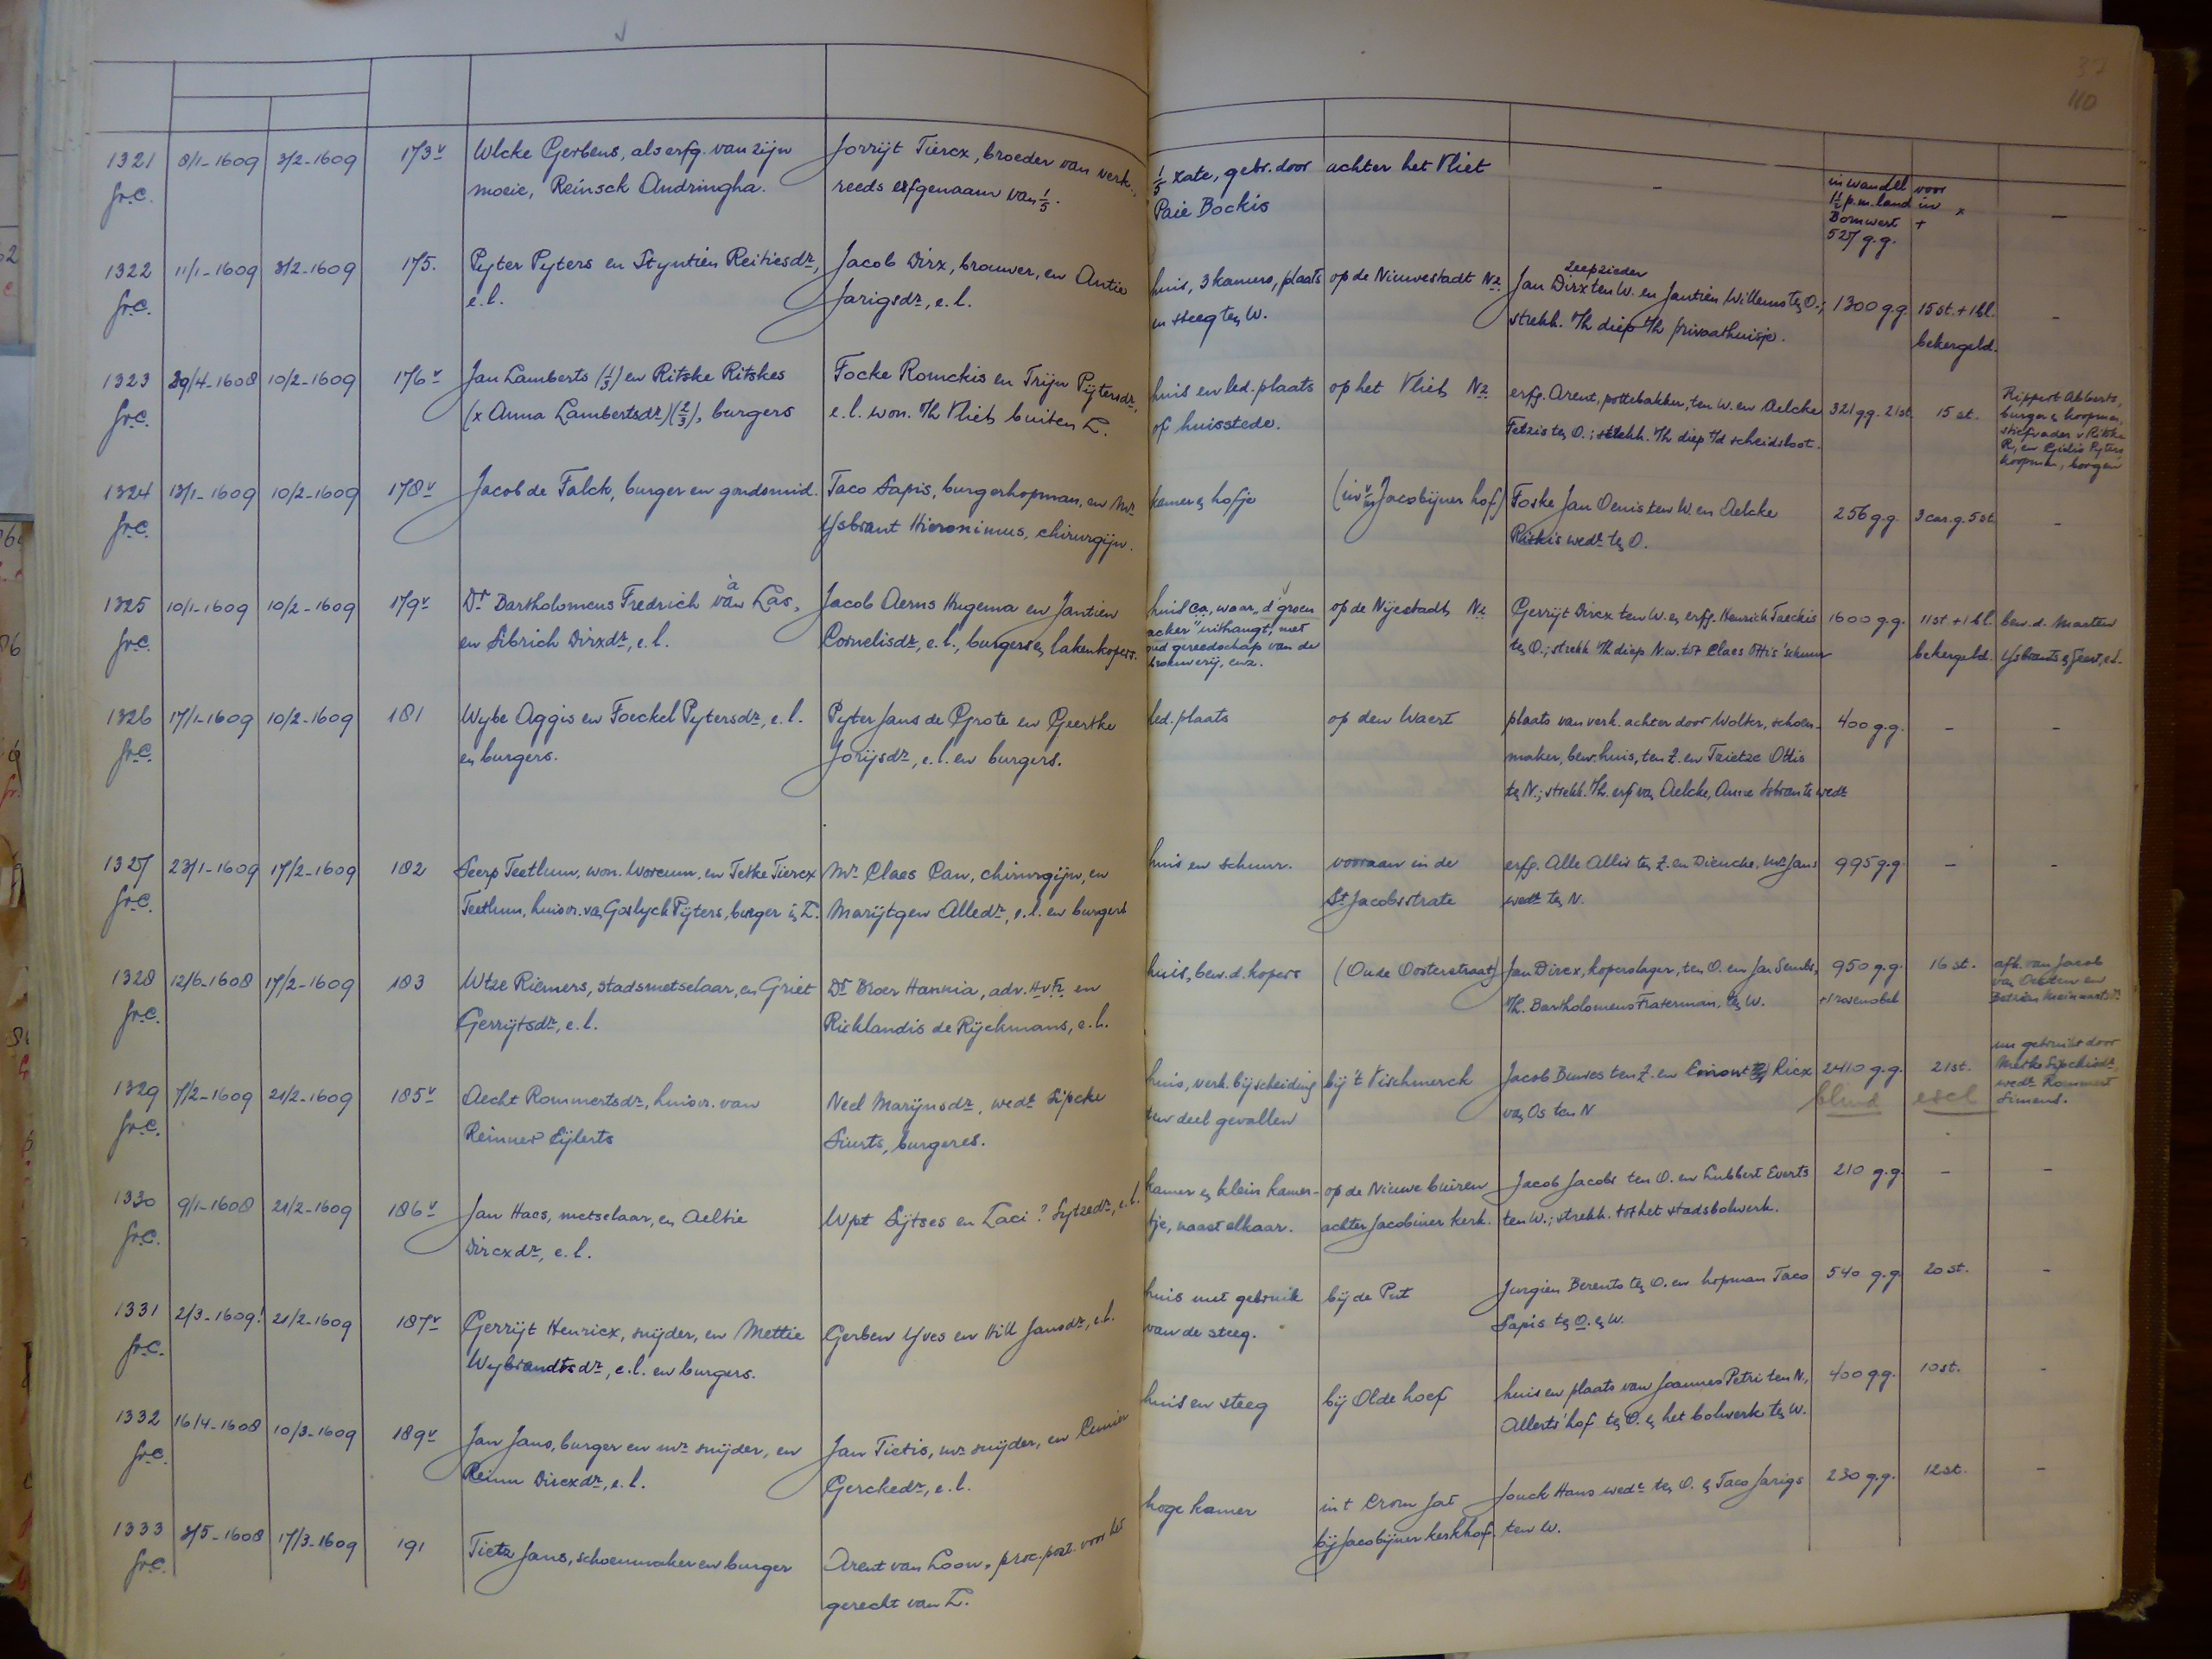 37
110
1321 8/1-1609 3/2-1609 173v Wlcke Gerbens, als erfg. van zijn Jorrijt Tiercx, broeder van verk., 1/5 zate, gebr. door achter het Vliet - in wandel voor
fr.C. moeie, Reinsck Andringha. reeds erfgenaam van 1/5. Paie Bockis 1½ p.m. land in x -
Bornwert +
527 g.g.
1322 11/1-1609 3/2-1609 175. Pyter Pyters en Styntien Reitiesdr, Jacob Dirx, brouwer, en Antie huis, 3 kamers, plaats op de Nieuwestadt Nz. Jan Dirx zeepzieder ten W. en Jantien Willems ten O.; 1300 g.g. 15 st. + 1 bl. -
fr.C. e.l. Jarigsdr, e.l. en steeg ten W. strekk. t/h diep t/h privaathuisje. bekergeld.
1323 29/4-1608 10/2-1609 176v Jan Lamberts (1/3) en Ritske Ritskes Focke Romckis en Trijn Pijtersdr, huis en led. plaats op het Vliet Nz. erfg. Arent, pottebakker, ten W. en Aelcke 321 g.g. 21 st. 15 st. Rippert Abberts,
fr.C. (x Anna Lambertsdr) (2/3), burgers e.l. won. t/h Vliet buiten L. of huisstede. Fetzis ten O.; strekk. t/h diep t/d scheidsloot. burger en koopman,
stiefvader v Ritske
R, en Gielis Pyters
koopman, borgen
1324 13/1-1609 10/2-1609 178v Jacob de Falck, burger en goudsmid. Taco Sapis, burgerhopman, en Mr kamer en hofje (in Jacobijner hof) Foske Jan Oenis ten W. en Aelcke 256 g.g. 3 car.g. 5 st. -
fr.C. Ysbrant Hieronimus, chirurgijn. wedr ten O.
1325 10/1-1609 10/2-1609 179v Dr Bartholomeus Fredrich van à Las, Jacob Aerns Hugema en Jantien huis ca, waar "d'groen op de Nijestadt Nz Gerrijt Dircx ten W. en erfg. Henrich Taeckis 1600 g.g. 11 st + 1 bl. bew. d. Marten
fr.C. en Sibrich Dirxdr, e.l. Cornelisdr, e.l., burgers en lakenkopers. acker" uithangt, met ten O.; strekk t/h diep N.w. tot Claes Ottis' schuur bekergeld. Ysbrants en Geert, e.l.
oud gereedschap van de
brouwerij, enz.
1326 17/1-1609 10/2-1609 181 Wybe Aggis en Foeckel Pytersdr, e.l. Pyter Jans de Grote en Geertke led. plaats op den Waert plaats van verk. achter door Wolter, schoen- 400 g.g. - -
fr.C. en burgers. Jorijsdr, e.l. en burgers. maker, bew. huis, ten Z. en Tzietze Ottis
ten N.; strekk. t/h. erf van Aelcke, Anne Sibrants wedr
1327 23/1-1609 17/2-1609 182 Seerp Teetlum, won. Worcum, en Tetke Tiercx Mr Claes Can, chirurgijn, en huis en schuur. vooraan in de erfg. Alle Allis ten Z. en Dieucke, Mr Jans 995 g.g. - -
fr.C. Teetlum, huisvr. van Goslyck Pijters, burger in L. Marijtgen Alledr, e.l. en burgers St Jacobsstrate wedr ten N.
1328 12/6-1608 17/2-1609 183 Wtze Riemers, stadsmetselaar, en Griet Dr Broer Hannia, adv. HvFr. en huis, bew. d. kopers (Oude Oosterstraat) Jan Dircx, koperslager, ten O. en Jan 950 g.g. 16 st. afk. van Jacob
fr.C. Gerrijtsdr, e.l. Ricklandis de Rijckmans, e.l. t/h. Bartholomeus Fraterman, ten W. + 1 rosenobel
1329 7/2-1609 21/2-1609 185v Aecht Rommertsdr, huisvr. van Neel Marijnsdr, wedr Sipcke huis, verk. bij scheiding bij 't Vischmerck Jacob Buwes ten Z. en Ricx 2410 g.g. 21 st. nu gebruikt door
fr.C. Reimer Eijlerts Siurts, burgeres. ten deel gevallen van Os ten N wedr Rommert
Simens.
1330 9/1-1608 21/2-1609 186v Jan Haes, metselaar, en Aeltie Wpt Sijtses en Laci? Sytzedr, e.l. kamer en klein kamer- op de Nieuwe buiren Jacob Jacobs ten O. en Lubbert Everts 210 g.g. - -
fr.C. Dircxdr, e.l. tje, naast elkaar. achter Jacobiner kerk. ten W.; strekk. tot het stadsbolwerk.
1331 2/3-1609! 21/2-1609 187v Gerrijt Henricx, snijder, en Mettie Gerben Yves en Hill Jansdr, e.l. huis met gebruik bij de Put Jurgien Berents ten O. en hopman Taco 540 g.g. 20 st. -
fr.C. Wybrandtsdr, e.l. en burgers. van de steeg. Sapis ten O. en W.
1332 16/4-1608 10/3-1609 189v Jan Jans, burger en mr snijder, en Jan Tietis, mr snijder, en huis en steeg bij Olde hoef huis en plaats van Joannes Petri ten N., 400 g.g. 10 st. -
fr.C. Reinu Dircxdr, e.l. Gerckedr, e.l. Allerts' hof ten O. en het bolwerk ten W.
1333 3/5-1608 17/3-1609 191 Tietz Jans, schoenmaker en burger Arent van Loon, proc. post. voor het hoge kamer in t Crom Jat Jouck Hans wedr ten O. en Taco Jarigs 230 g.g. 12 st. -
fr.C. gerecht van L. bij Jacobijner kerkhof. ten W.